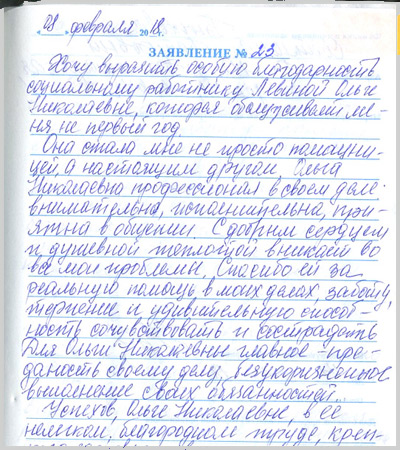 „08" февраля 2018 г.
ЗАЯВЛЕНИЕ № 23
Хочу выразить особую благодарность
социальному работнику Левиной Ольге
Николаевне, которая обслуживает ме-
ня не первый год
Она стала мне не просто помощни-
цей, а настоящим другом. Ольга
Николаевна профессионал в своем деле
внимательна, исполнительна, прия-
тна в общении. С добрым сердцем
и душевной теплотой вникает во
все мои проблемы, Спасибо ей за
реальную помощь в моих делах, заботу,
терпение и удивительную способ-
ность сочувствовать и сострадать
Для Ольги Николаевны главное - пре-
даность своему делу, безукоризненное
выполнение своих обязанностей.
Успехов, Ольге Николаевне, в ее
нелегком, благородном труде, креп-